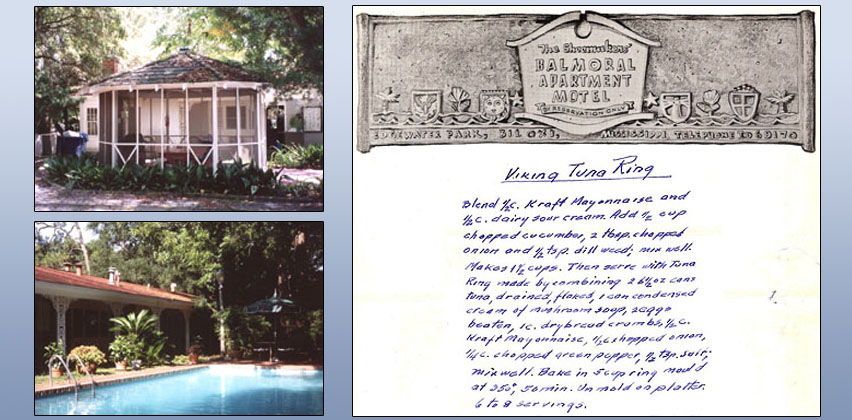 "The Shoemakers'
BALMORAL
APARTMENT
MOTEL
BY RESERVATION ONLY
EDGEWATER PARK, BILOXI, MISSISSIPPI, TELEPHONE
Viking Tuna Ring
Blend ½c. Kraft Mayonnaise and
½c. dairy sour cream. Add ½ cup
chopped cucumber, 2 tbsp. chopped
onion and ½ tsp. dill weed; mix well.
Makes 1½ cups. Then serve with Tuna
Ring made by combining 2 6½oz cans
tuna, drained, flaked, 1 can condensed
cream of mushroom soup, 2 eggs
beaten, 1c. dry bread crumbs, ½c.
Kraft Mayonnaise, ½c chopped onion,
¼c. chopped green pepper, ½ tsp. salt;
mix well. Bake in 5 cup ring mould
at 350°, 50 min. Un mold on platter.
6 to 8 servings.